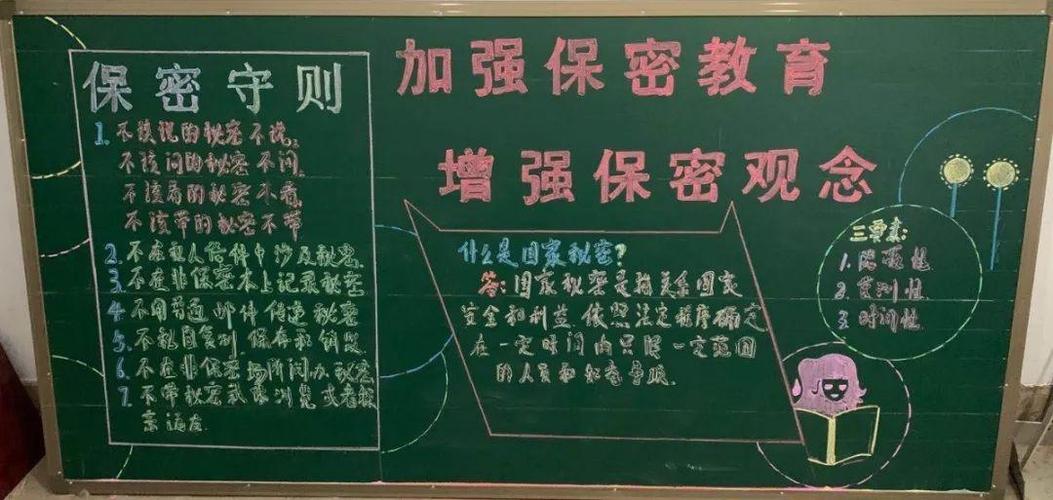 加强保密教育
增强保密观念
保密守则
1. 不该说的秘密不说。
不该问的秘密不问。
不该看的秘密不看。
不该带的秘密不带
2. 不在私人信件中涉及秘密。
3. 不在非保密本上记录秘密
4. 不用普通邮件传递秘密
5. 不私自复制、保存和销毁。
6. 不在非保密场所阅办秘密
7. 不带秘密或
什么是国家秘密？
答：国家秘密是指关系国家
安全和利益，依照法定程序确定
在一定时间内只限一定范围
的人员知悉事项。
三要素：
1.
2. 法则性
3. 时间性